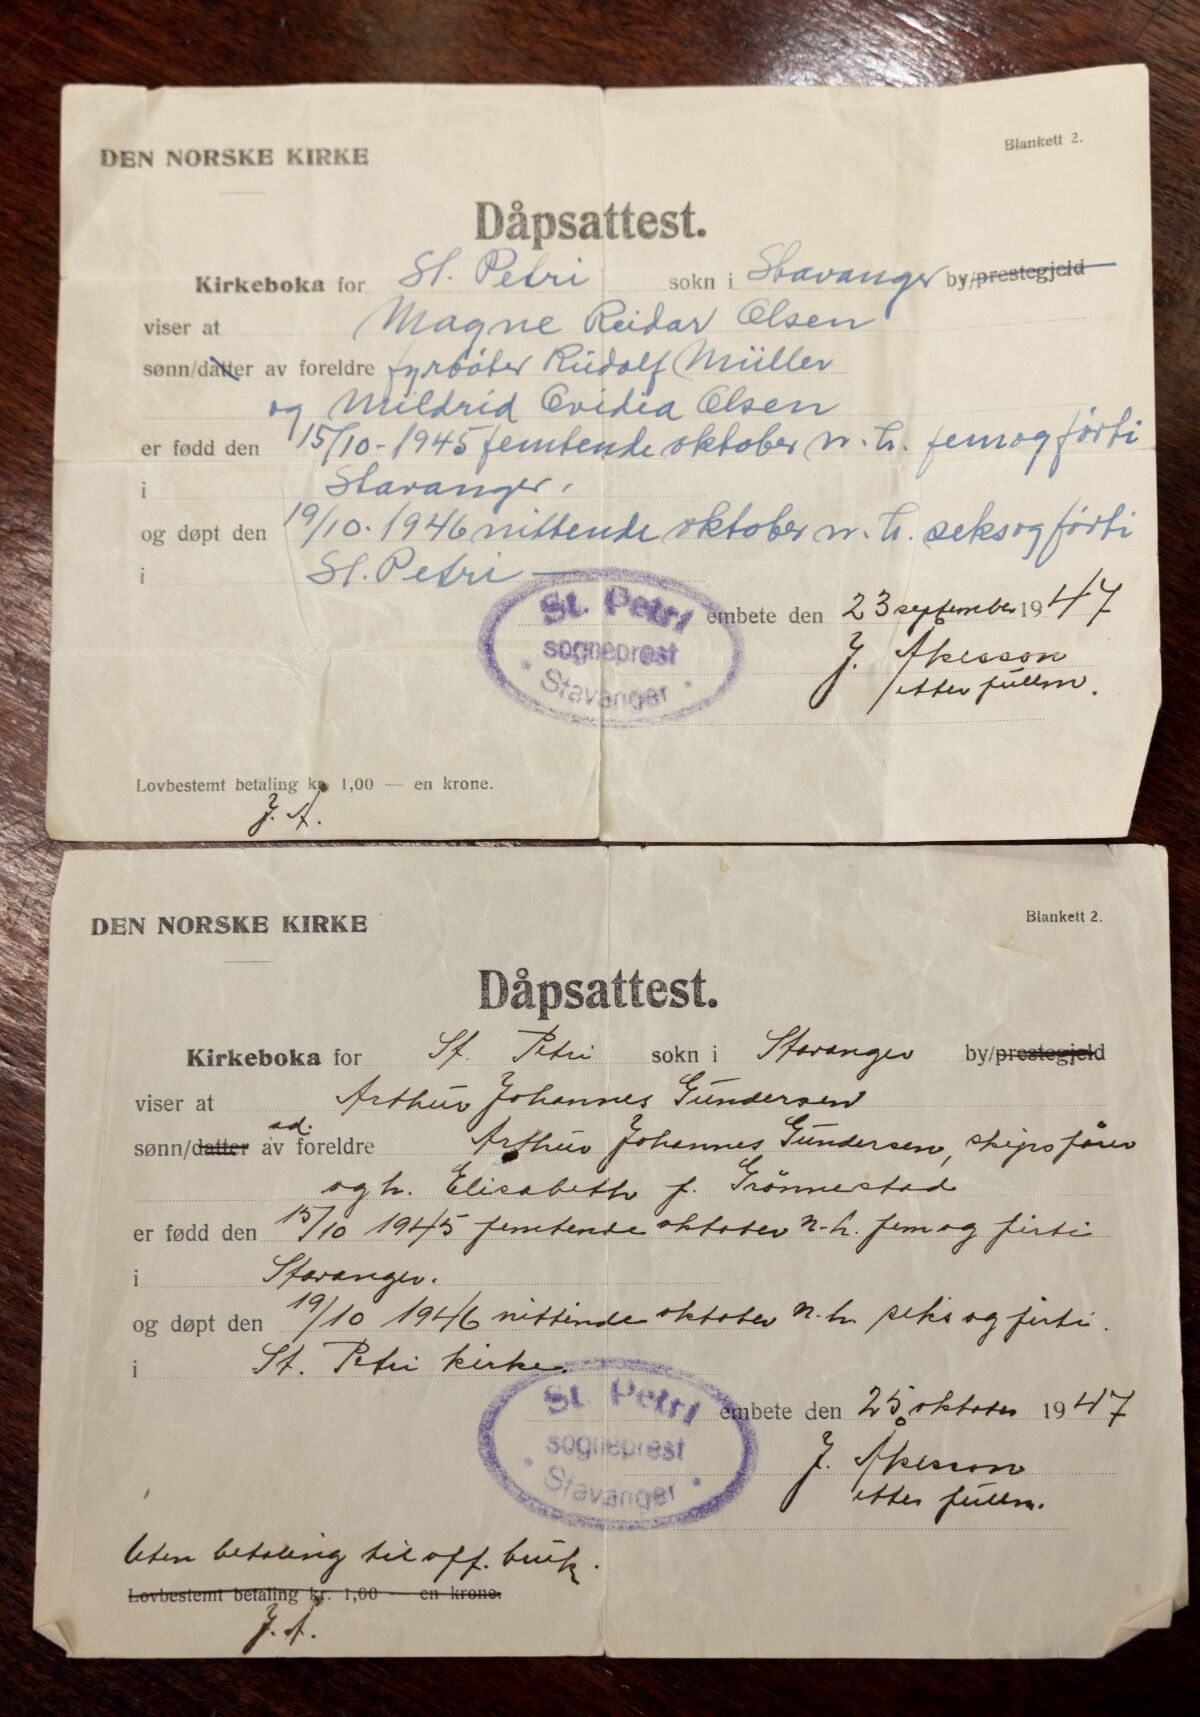 DEN NORSKE KIRKE
Blankett 2.
Dåpsattest.
Kirkeboka for St. Petri sokn i Stavanger by/prestegjeld
viser at Magne Reidar Olsen
sønn/datter av foreldre fyrbøter Rudolf Müller
og Mildrid Ovidia Olsen
er født den 15/10-1945 femtende oktober n. h. femogførti
i Stavanger.
og døpt den 19/10-1946 nittende oktober n. h. seksogførti
i St. Petri —
St. Petri
sogneprest
Stavanger
embete den 23 september 1947
J. Åkesson
etter fullm.
Lovbestemt betaling kr. 1,00 — en krone.
J. Å.
DEN NORSKE KIRKE
Blankett 2.
Dåpsattest.
Kirkeboka for St. Petri sokn i Stavanger by/prestegjeld
viser at Arthur Johannes Gundersen
sønn/datter ad. av foreldre Arthur Johannes Gundersen, skipsfører
og h. Elisabeth f. Grønnestad
er født den 15/10 1945 femtende oktober n. h. fem og firti
i Stavanger.
og døpt den 19/10 1946 nittende oktober n. h. seks og firti.
i St. Petri kirke.
St. Petri
sogneprest
Stavanger
embete den 25 oktober 1947
J. Åkesson
etter fullm.
Uten betaling til off. bruk.
Lovbestemt betaling kr. 1,00 — en krone.
J. Å.